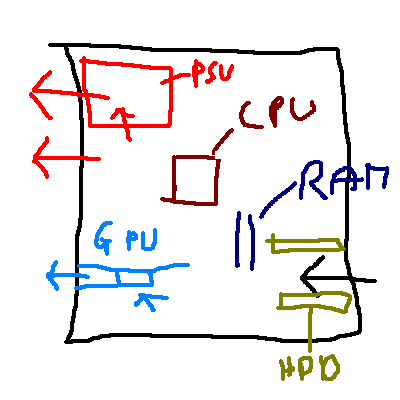 PSU
CPU
RAM
GPU
HDD